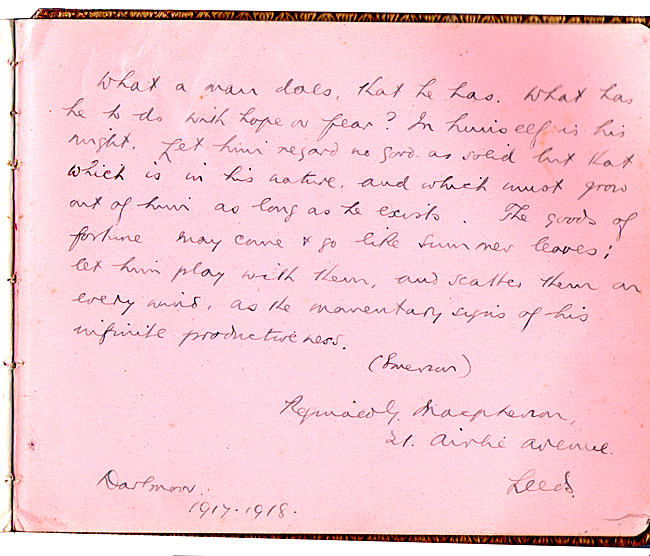 What a man does, that he has. What has
he to do with hope or fear? In himself is his
might. Let him regard no good as solid but that
which is in his nature, and which must grow
out of him as long as he exists. The goods of
fortune may come & go like summer leaves;
let him play with them, and scatter them on
every wind, as the momentary signs of his
infinite productiveness.
(Emerson)
Reginald G. Macpherson,
21. Airlie avenue.
Leeds.
Dartmoor.
1917-1918.